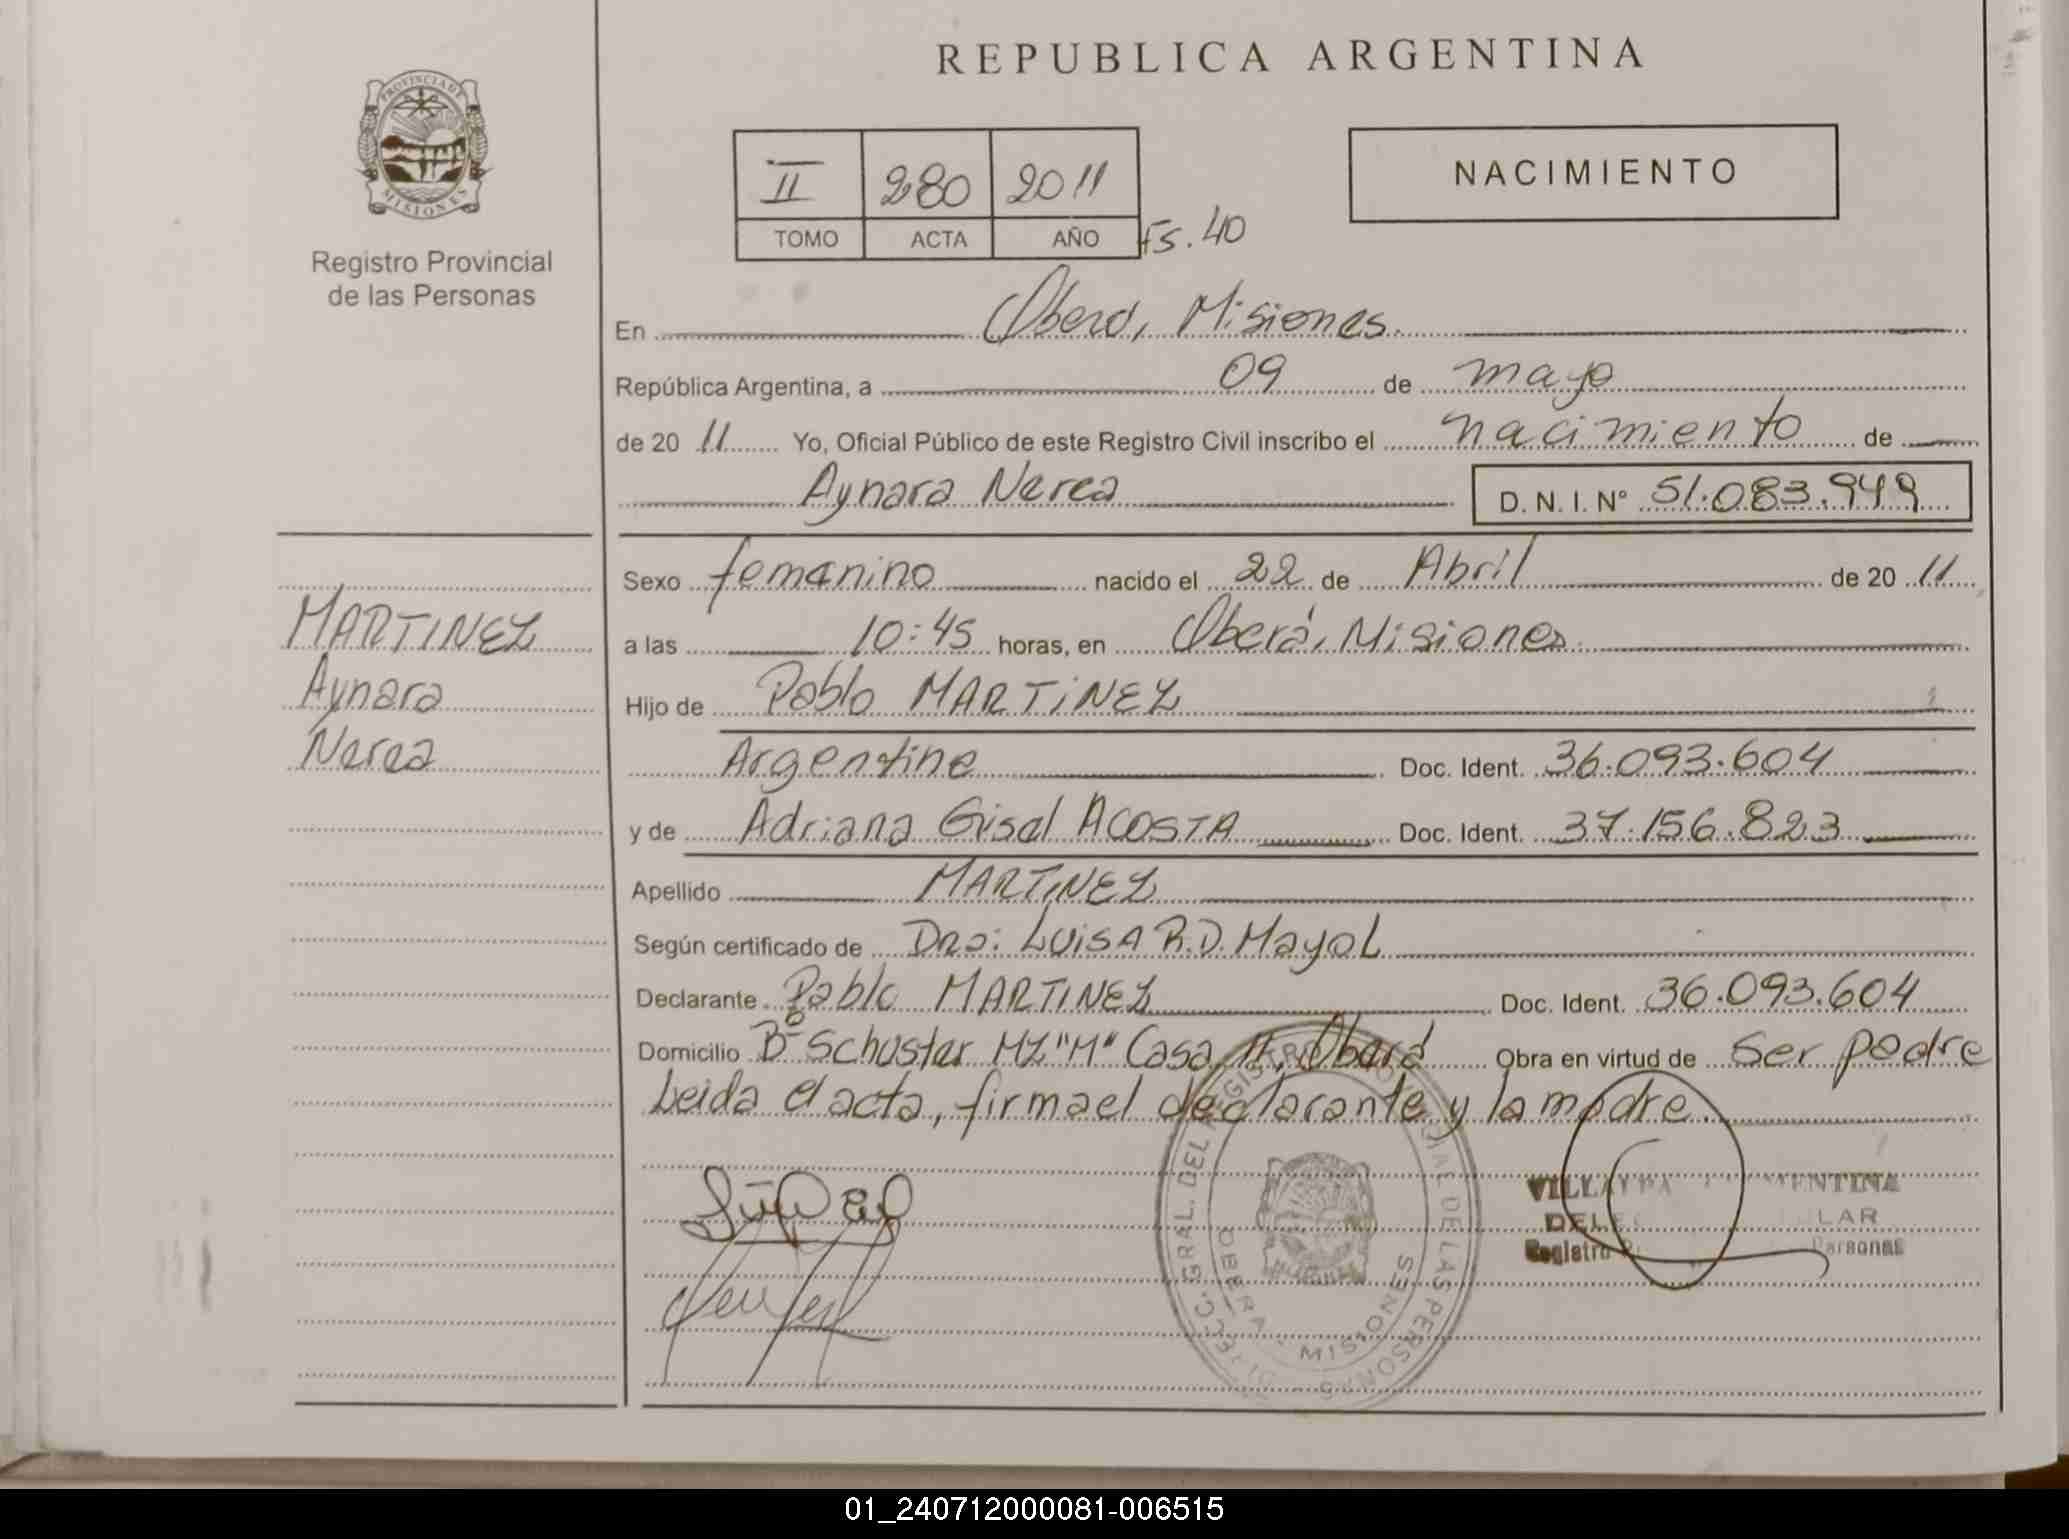 REPUBLICA ARGENTINA
PROVINCIA DE
MISIONES
Registro Provincial
de las Personas
II 280 2011
TOMO ACTA AÑO Fs. 40
NACIMIENTO
En Oberá, Misiones.
República Argentina, a 09 de mayo
de 20 11 Yo, Oficial Público de este Registro Civil inscribo el nacimiento de
Aynara Nerea D. N. I. N° 51.083.949
Sexo femenino nacido el 22 de Abril de 20 11
a las 10:45 horas, en Oberá, Misiones.
Hijo de Pablo MARTINEZ
Argentine Doc. Ident. 36.093.604
y de Adriana Gisel ACOSTA Doc. Ident. 37.156.823
Apellido MARTINEZ
Según certificado de Dra: LUISA R.D. Mayol
Declarante Pablo MARTINEZ Doc. Ident. 36.093.604
Domicilio Bº Schuster MZ "M" Casa 11, Oberá Obra en virtud de ser padre
Leida el acta, firma el declarante y la madre.
MARTINEZ
Aynara
Nerea
OBERA - MISIONES
Registro Personas
01_240712000081-006515